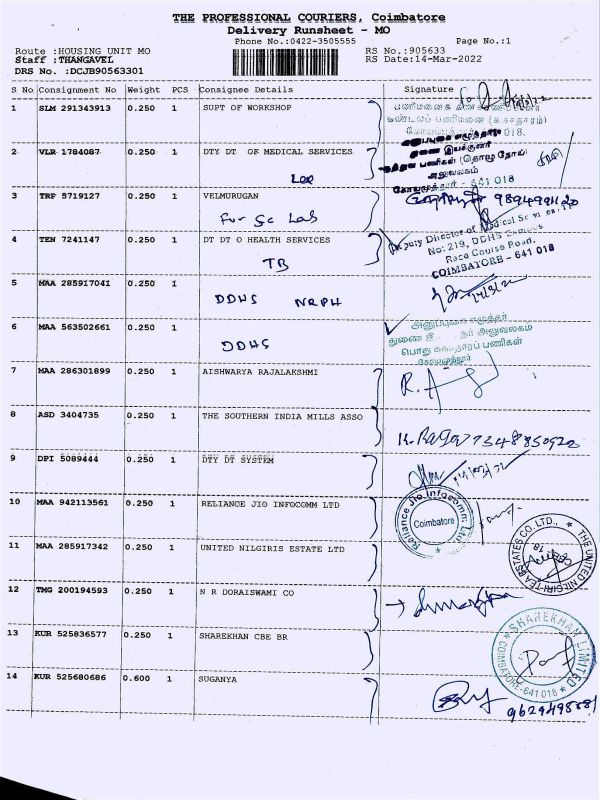 THE PROFESSIONAL COURIERS, Coimbatore
Delivery Runsheet - MO
Phone No.:0422-3505555
Page No.:1
Route :HOUSING UNIT MO
RS No.:905633
Staff :THANGAVEL
RS Date:14-Mar-2022
DRS No. :DCJB90563301
S No Consignment No Weight PCS Consignee Details Signature
1 SLM 291343913 0.250 1 SUPT OF WORKSHOP
2 VLR 1784087 0.250 1 DTY DT OF MEDICAL SERVICES
துணை இயக்குனர்
அலுவலகம்
641 018
3 TRP 5719127 0.250 1 VELMURUGAN
9894991120
for Sc Lab
Deputy Director of Medical
No: 219, DDHS
Race Course Road,
COIMBATORE - 641 018
4 TEN 7241147 0.250 1 DT DT O HEALTH SERVICES
TB
5 MAA 285917041 0.250 1
DDHS NRPH
6 MAA 563502661 0.250 1
DDHS
7 MAA 286301899 0.250 1 AISHWARYA RAJALAKSHMI
8 ASD 3404735 0.250 1 THE SOUTHERN INDIA MILLS ASSO
9 DPI 5089444 0.250 1 DTY DT SYSTEM
10 MAA 942113561 0.250 1 RELIANCE JIO INFOCOMM LTD
Reliance Jio Infocomm Ltd
Coimbatore
11 MAA 285917342 0.250 1 UNITED NILGIRIS ESTATE LTD
THE UNITED NILGIRI TEA ESTATES CO. LTD.,
12 TMG 200194593 0.250 1 N R DORAISWAMI CO
13 KUR 525836577 0.250 1 SHAREKHAN CBE BR
SHAREKHAN LIMITED
COIMBATORE-641018
14 KUR 525680686 0.600 1 SUGANYA